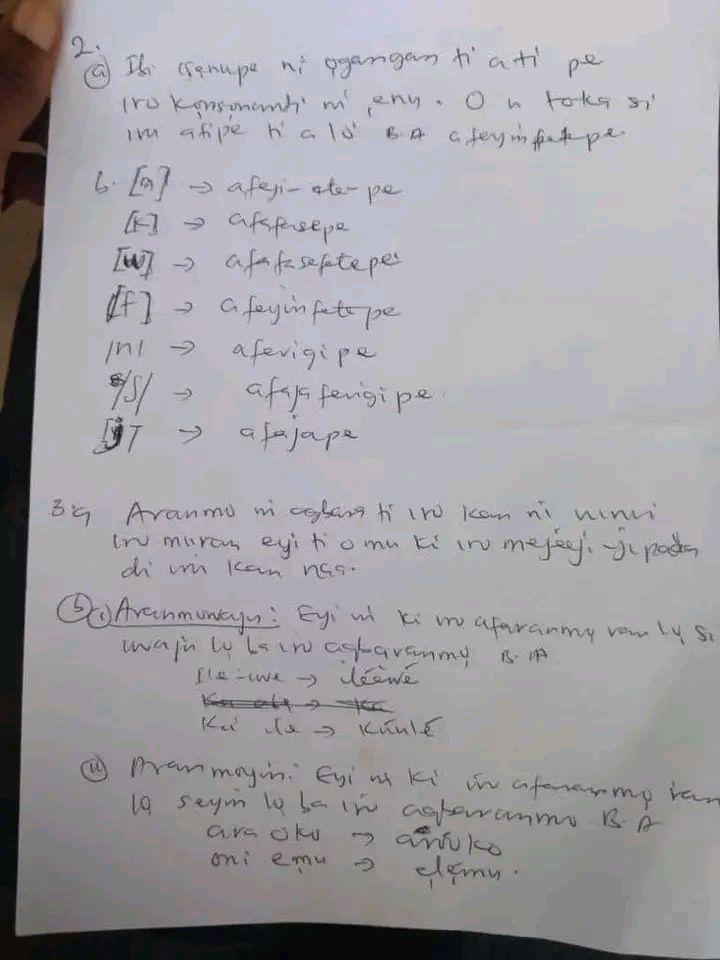 2.
(a) Ibi isenupe ni ọgangan ti a ti pe
iro konsonanti ni ẹnu. O n toka si
iru afipe ti a lo B.A afeyinfetepe
b. [a] → afeji-ete-pe
[K] → afafasepe
[w] → afafasefetepe
[f] → afeyinfetepe
/n/ → aferigipe
/S/ → afaja ferigipe
[j] → afajape
3.a Aranmo ni agbara ti iro kan ni ninu
iro miran eyi ti o mu ki iro mejeeji -ji pada
di iru kan naa.
(b)(i) Aranmowaju: Eyi ni ki iro afaranmọ ran lọ si
iwaju lọ ba iro agbaranmọ B.A
Ile-iwe → iléèwé
Kú ile → Kúulé
(ii) Aranmoyin: Eyi ni ki iro afaranmọ ran
lọ seyin lọ ba iro agbaranmo B.A
ara oko →
oni ẹmu → ẹlẹ́mu.